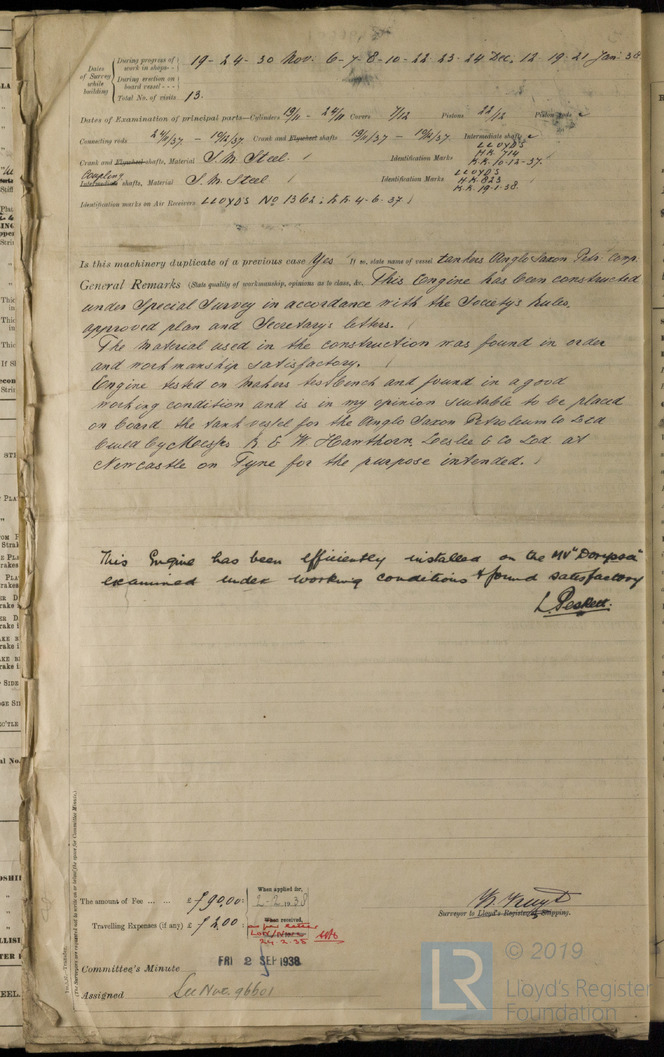 Dates of Survey while building
During progress of work in shops - - 19 - 24 - 30 Nov. 6 - 7 - 8 - 10 - 22 23 - 24 Dec. 12 19 - 21 Jan. 38
During erection on board vessel - - -
Total No. of visits 13.
Dates of Examination of principal parts—Cylinders 19/11 - 24/11 Covers 7/12 Pistons 22/12 Piston rods
Connecting rods 24/11/37 - 19/2/37 Crank and Flywheel shafts 19/11/37 - Intermediate shafts
Crank and Flywheel shafts, Material S.M. Steel Identification Marks LLOYD'S
No 714
K.K. 10-12-37.
Coupling
Intermediate shafts, Material S.M. Steel Identification Marks LLOYD'S
No 823
K.K. 19-1-38.
Identification marks on Air Receivers LLOYD'S No 1362: 4-6-37
Is this machinery duplicate of a previous case Yes If so, state name of vessel tankers Anglo Saxon Petr. Comp.
General Remarks (State quality of workmanship, opinions as to class, &c. This Engine has been constructed
under Special Survey in accordance with the Society's Rules,
approved plan and Secretary's letters.
The material used in the construction was found in order
and workmanship satisfactory.
Engine tested on makers testbench and found in a good
working condition and is in my opinion suitable to be placed
on board the tank vessel for the Anglo Saxon Petroleum Co Ltd
build by Messrs R & W Hawthorn, Leslie & Co Ltd. at
Newcastle on Tyne for the purpose intended.
This Engine has been efficiently installed on the MV "Doryssa"
examined under working conditions & found satisfactory
L. Peskett.
(The Surveyors are requested not to write on or below the space for Committee Minute.)
The amount of Fee ... ... £ f 90.00: When applied for, 2-2.1938
Travelling Expenses (if any) £ f 2.00: When received,
24.2.38
Surveyor to Lloyd's Register of Shipping.
Committee's Minute FRI 2 SEP 1938
Assigned See Nwc. 96601
LR © 2019
Lloyd's Register
Foundation